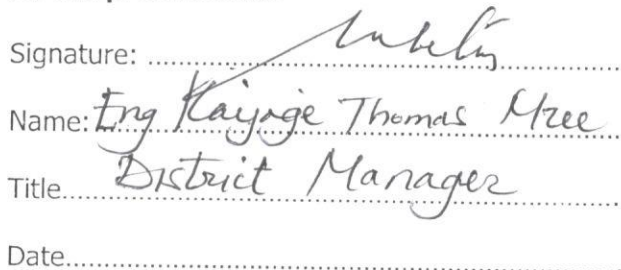 Signature: ........................................
Name: Eng Kaijage Thomas Mzee
Title.... District Manager
Date........................................